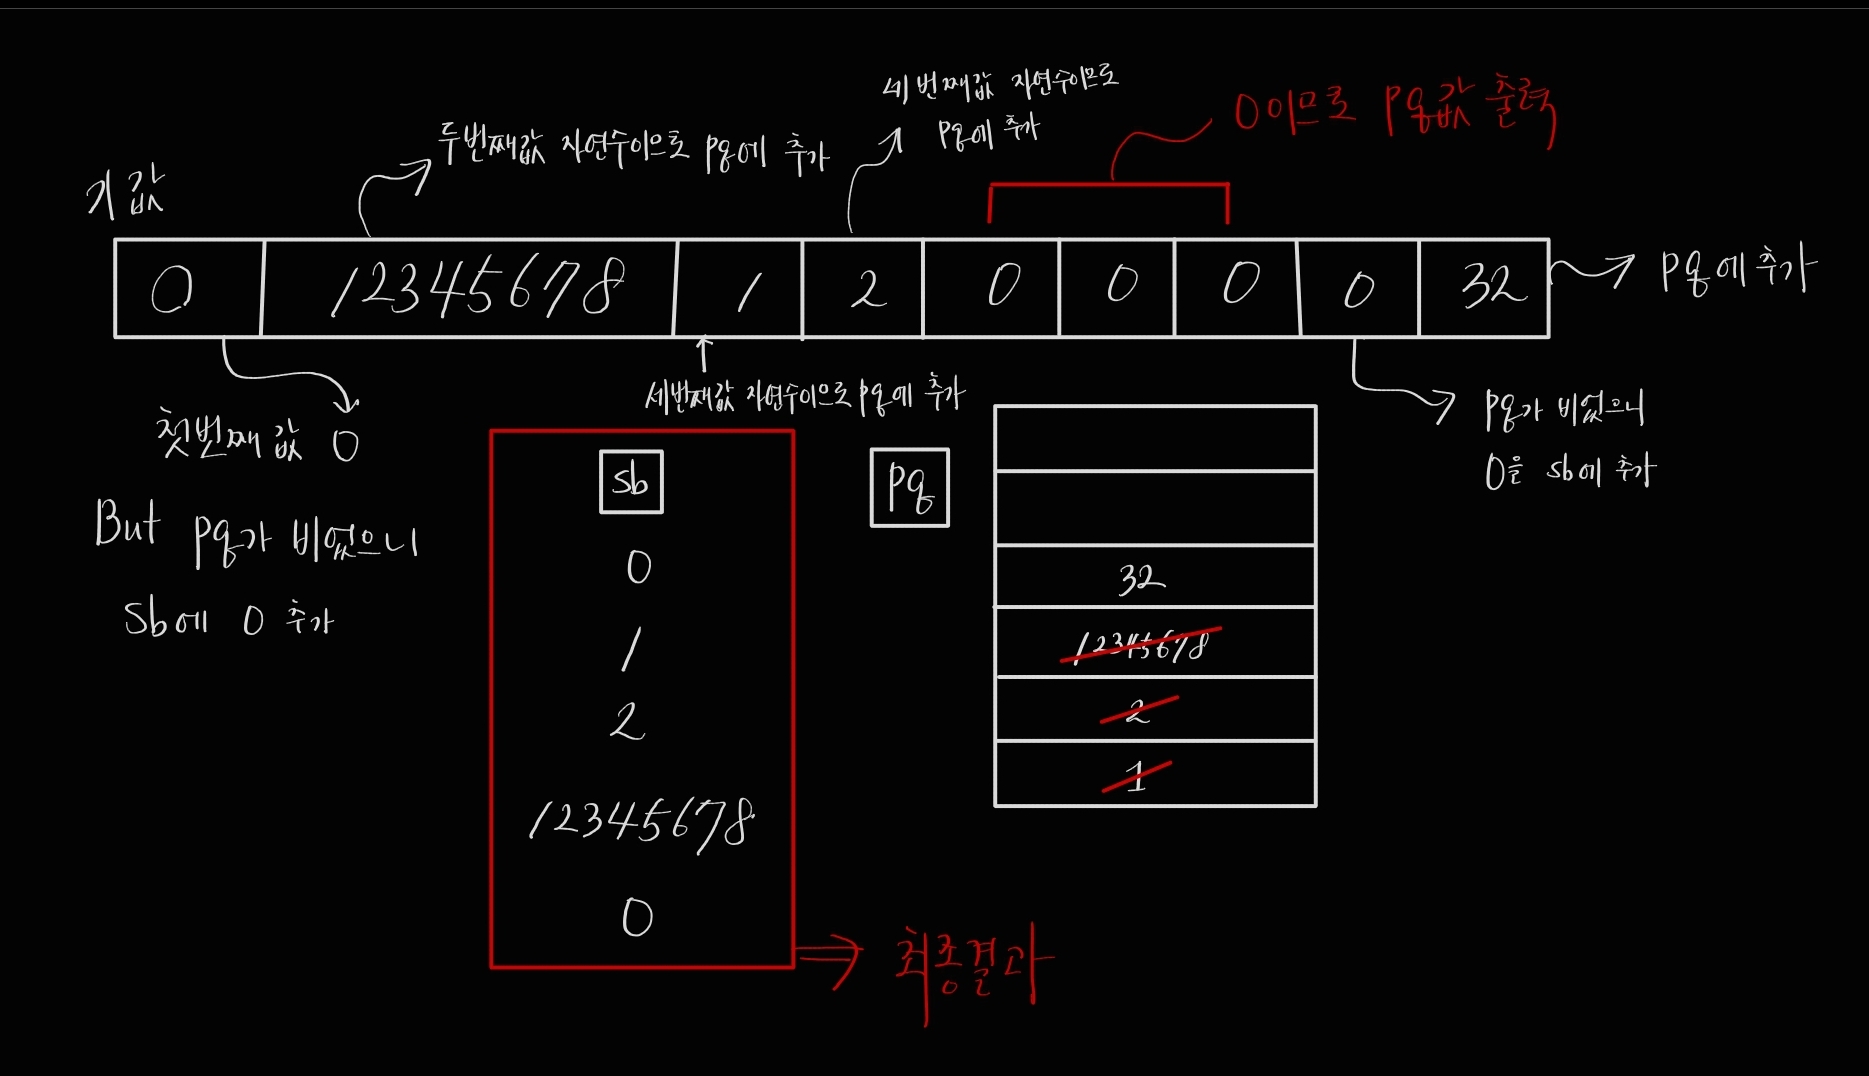 세번째값 자연수이므로
pq에 추가
0이므로 pq값 출력
두번째값 자연수이므로 pq에 추가
키값
0 12345678 1 2 0 0 0 0 32
pq에 추가
세번째값 자연수이므로 pq에 추가
첫번째값 0
But pq가 비었으니
Sb에 0 추가
pq가 비었으니
0을 sb에 추가
Sb
0
1
2
12345678
0
최종결과
pq
32
12345678
2
1